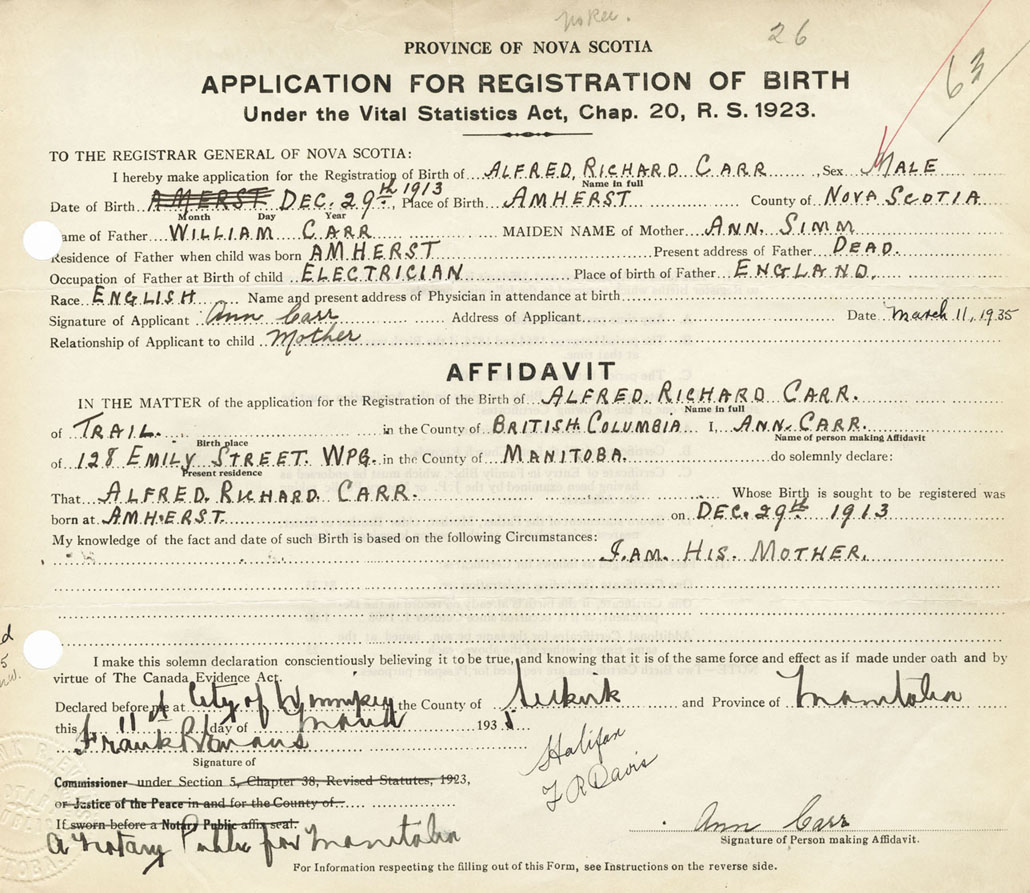 26
63
PROVINCE OF NOVA SCOTIA
APPLICATION FOR REGISTRATION OF BIRTH
Under the Vital Statistics Act, Chap. 20, R. S. 1923.
TO THE REGISTRAR GENERAL OF NOVA SCOTIA:
I hereby make application for the Registration of Birth of ALFRED. RICHARD CARR Sex MALE
Name in full
Date of Birth AMERST DEC. 29th, 1913 Place of Birth AMHERST County of NOVA SCOTIA
Month Day Year
ame of Father WILLIAM CARR MAIDEN NAME of Mother ANN. SIMM
Residence of Father when child was born AMHERST Present address of Father DEAD.
Occupation of Father at Birth of child ELECTRICIAN Place of birth of Father ENGLAND.
Race ENGLISH Name and present address of Physician in attendance at birth
Signature of Applicant Ann Carr Address of Applicant Date March 11, 1935
Relationship of Applicant to child Mother
AFFIDAVIT
IN THE MATTER of the application for the Registration of the Birth of ALFRED. RICHARD CARR.
Name in full
of TRAIL. in the County of BRITISH COLUMBIA I, ANN. CARR.
Birth place Name of person making Affidavit
of 128 EMILY STREET. WPG. in the County of MANITOBA. do solemnly declare:
Present residence
That ALFRED. RICHARD CARR. Whose Birth is sought to be registered was
born at AMHERST. on DEC. 29th 1913
My knowledge of the fact and date of such Birth is based on the following Circumstances:
I. AM. HIS. MOTHER.
I make this solemn declaration conscientiously believing it to be true, and knowing that it is of the same force and effect as if made under oath and by
virtue of The Canada Evidence Act.
Declared before me at City of Winnipeg the County of Selkirk and Province of Manitoba
this 11th day of March 1935
Frank
Signature of
Commissioner under Section 5, Chapter 38, Revised Statutes, 1923,
or Justice of the Peace in and for the County of
If sworn before a Notary Public affix seal.
A Notary Public for Manitoba
Halifax
F R Davis
Ann Carr
Signature of Person making Affidavit.
For Information respecting the filling out of this Form, see Instructions on the reverse side.